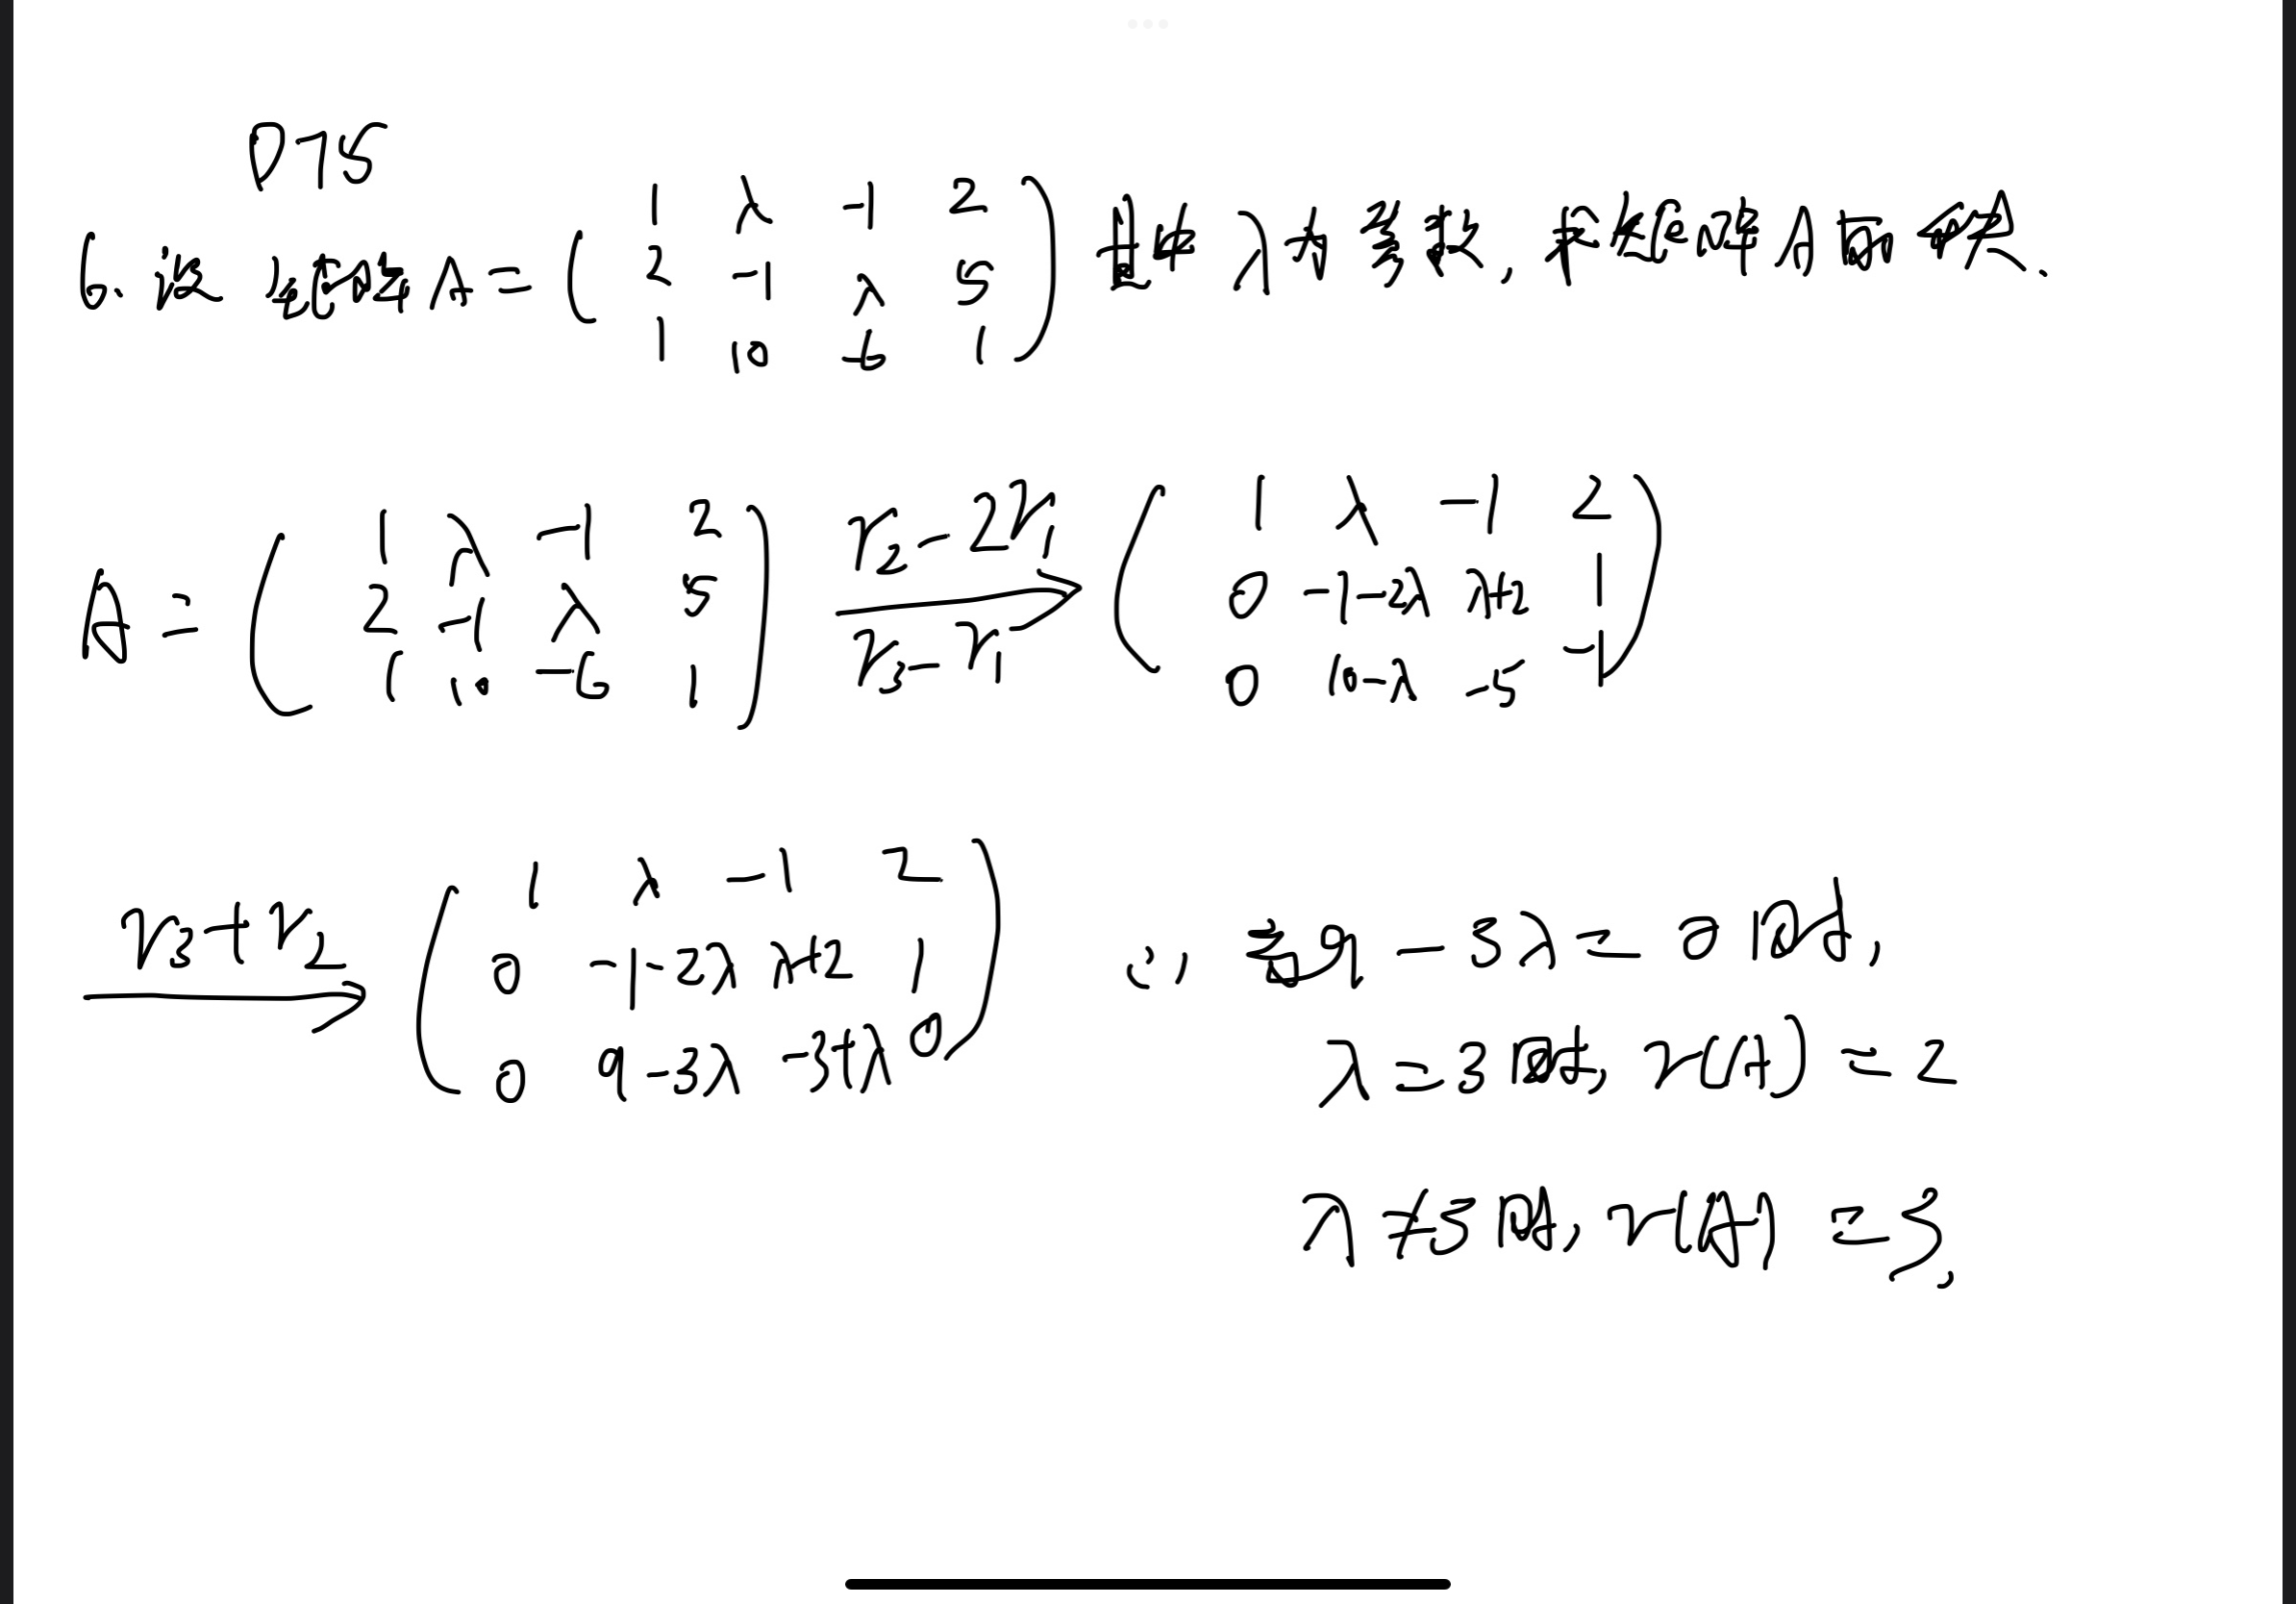 P75
6. 设矩阵 A = ( 1 λ -1 2
2 -1 λ 5
1 10 -6 1 ) 其中 λ 为参数, 求矩阵 A 的秩.
A = ( 1 λ -1 2
2 -1 λ 5
1 10 -6 1 ) r2 - 2r1
r3 - r1 → ( 1 λ -1 2
0 -1-2λ λ+2 1
0 10-λ -5 -1 )
r3 + r2 → ( 1 λ -1 2
0 -1-2λ λ+2 1
0 9-3λ -3+λ 0 )
∴ 当 9 - 3λ = 0 时,
λ = 3 时, r(A) = 2
λ ≠ 3 时, r(A) = 3.